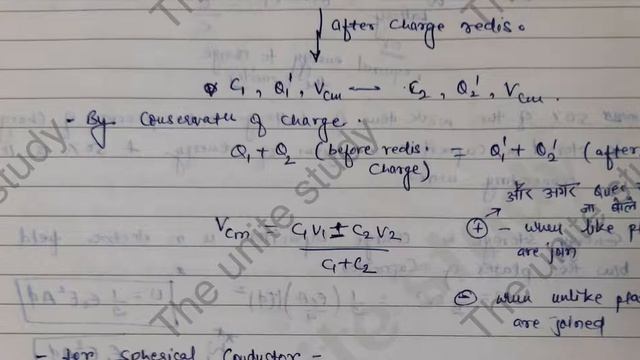 after charge redis.
C₁, Q₁', Vcm — C₂, Q₂', Vcm.
- By Conservatn of charge.
Q₁ + Q₂ (before redis. charge) = Q₁' + Q₂' (after
और अगर Ques
ना बोले
Vcm = C₁V₁ ± C₂V₂ / C₁ + C₂
⊕ - when like pl
are join
⊖ - when unlike pla
are joined
- for Spherical Conductor -
The unite study
The unite study
The unite study